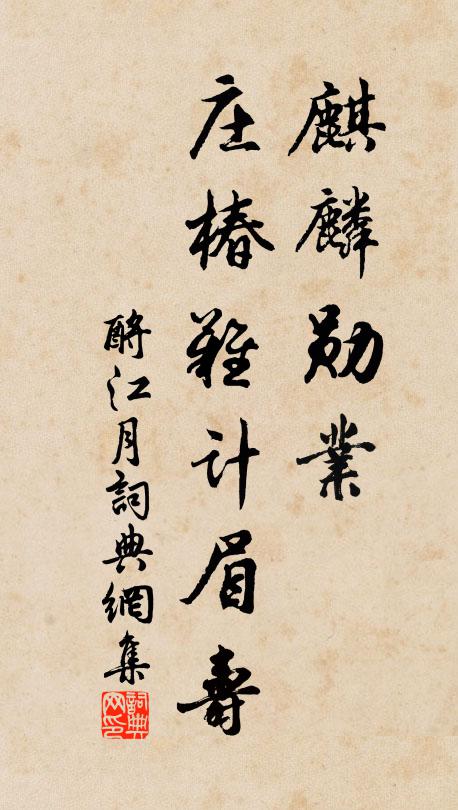 麒麟勋業
庄椿難計眉壽
酹江月詞典網集
詞典网印